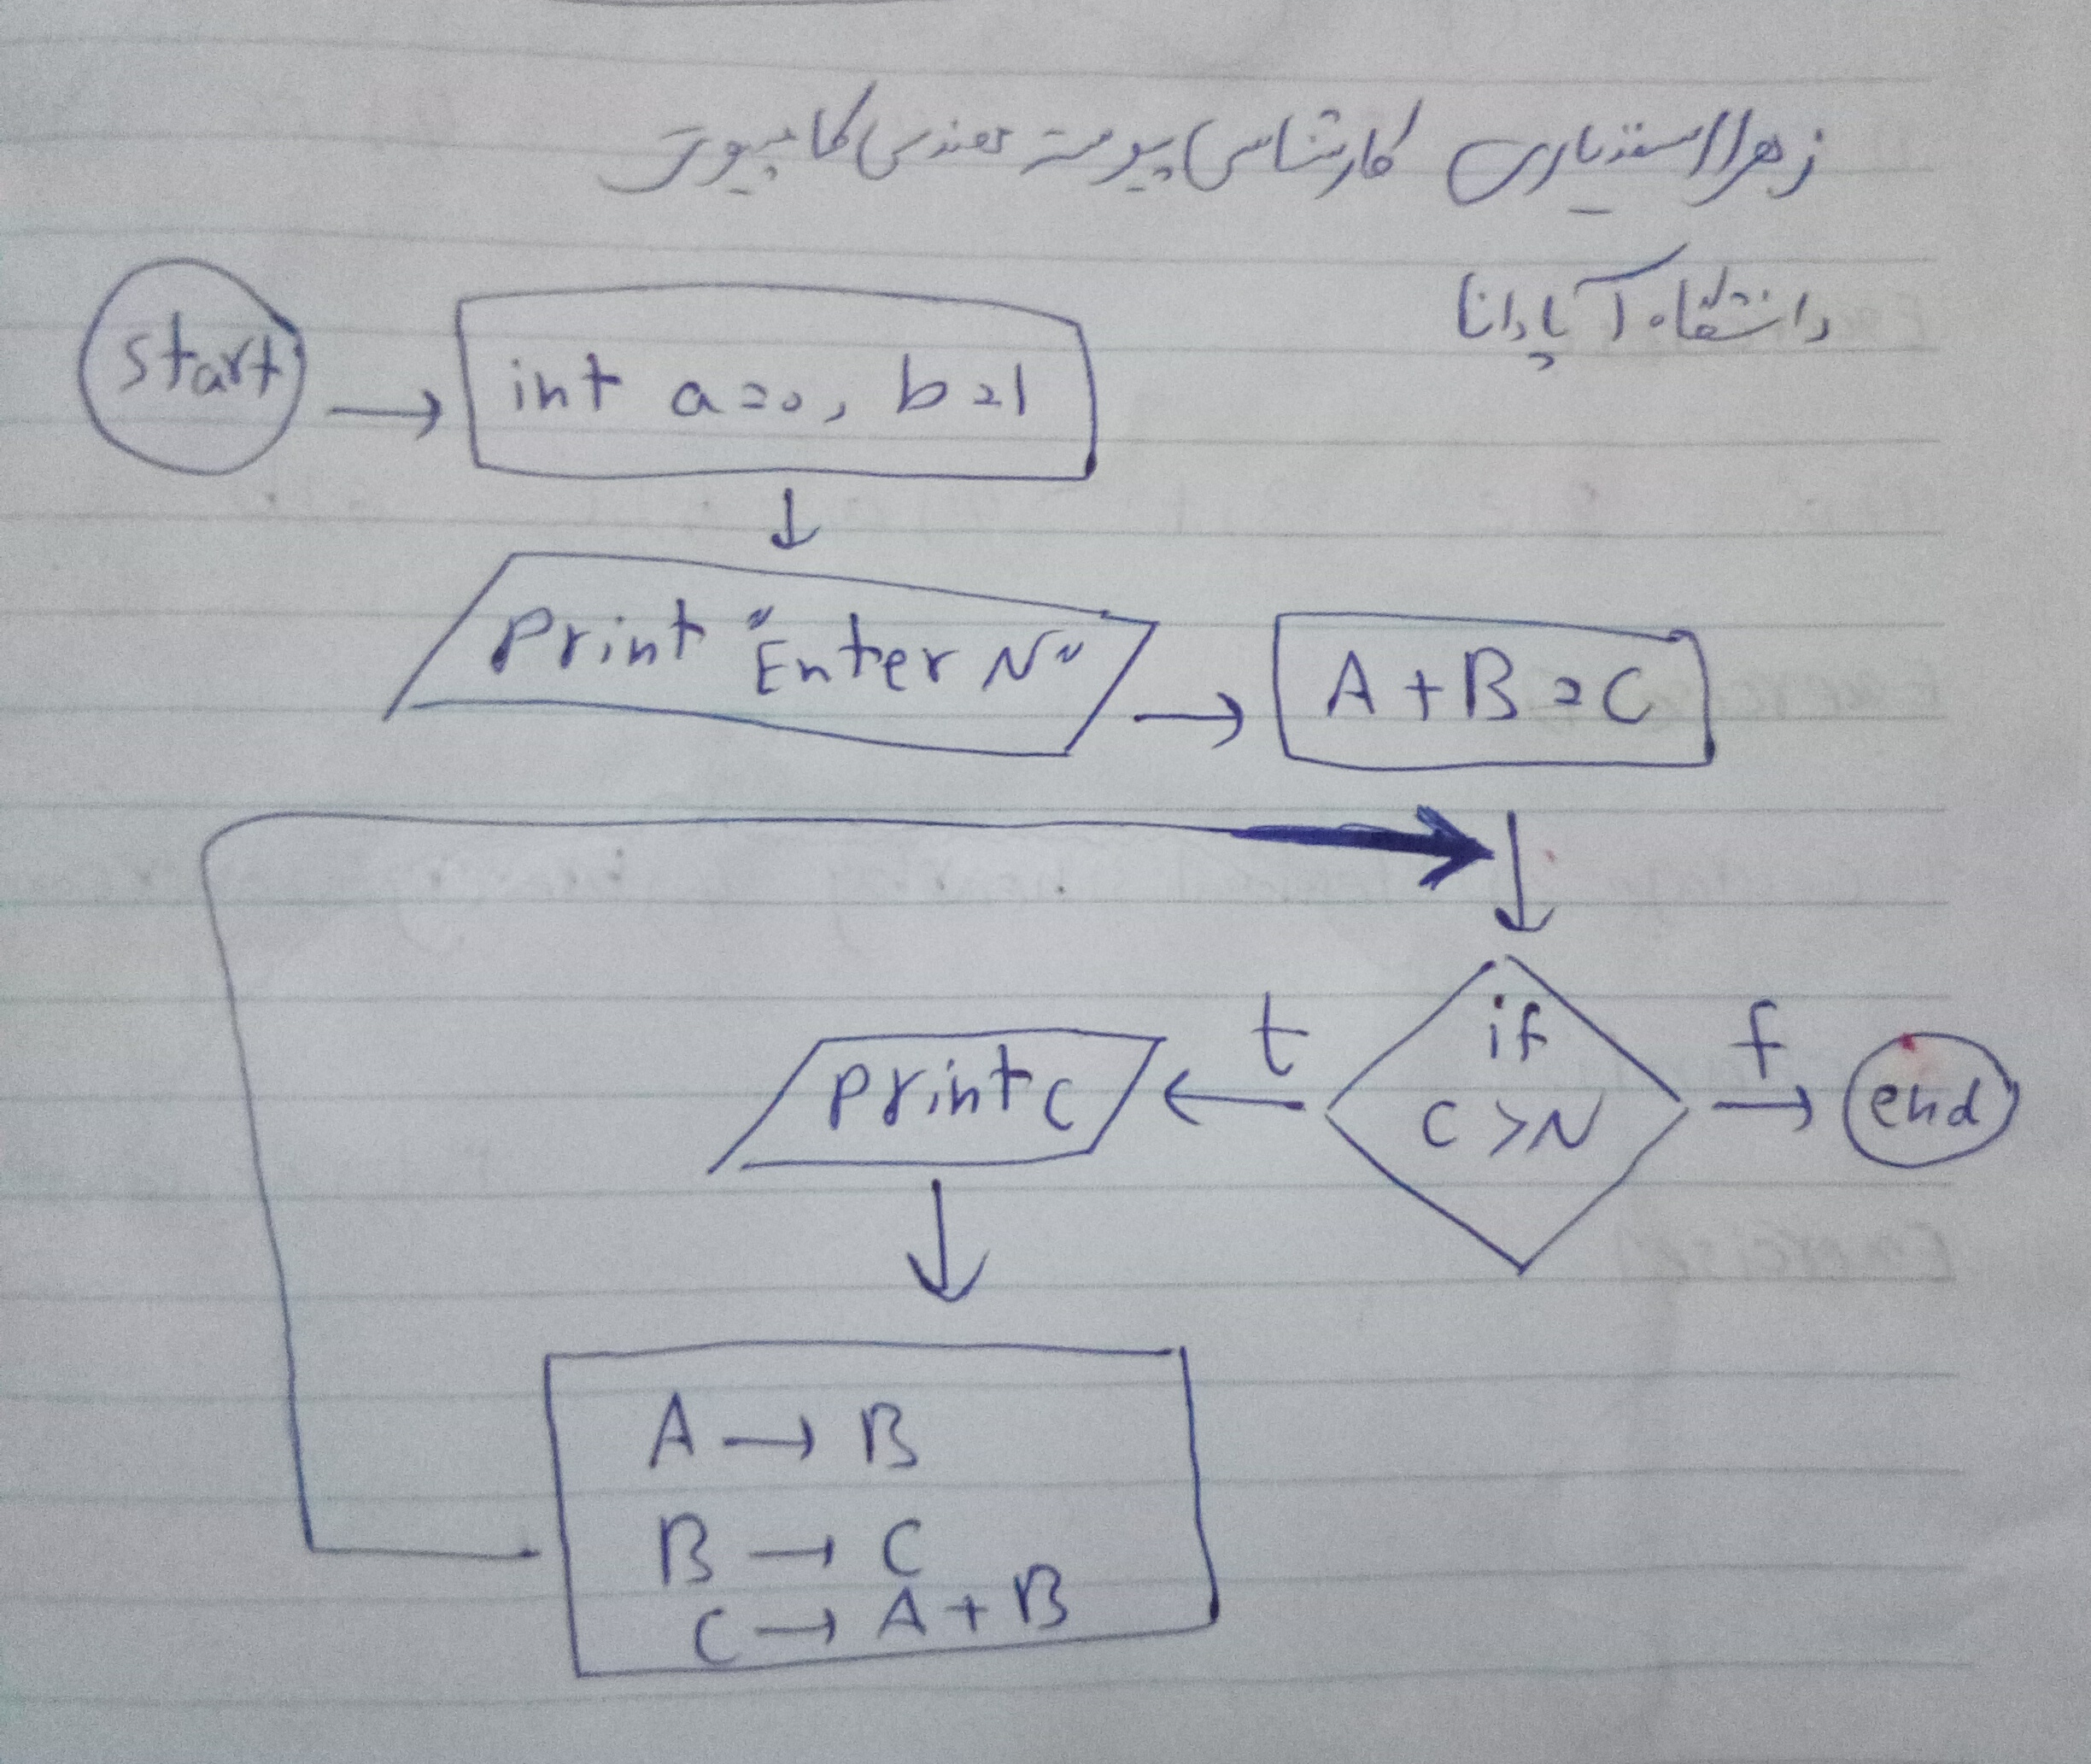 زهرا اسفندیاری کارشناسی پیوسته مهندسی کامپیوتر
دانشگاه آپادانا
start
int a=0, b=1
Print "Enter N"
A+B=C
if
C>N
t
f
end
print c
A → B
B → C
C → A+B